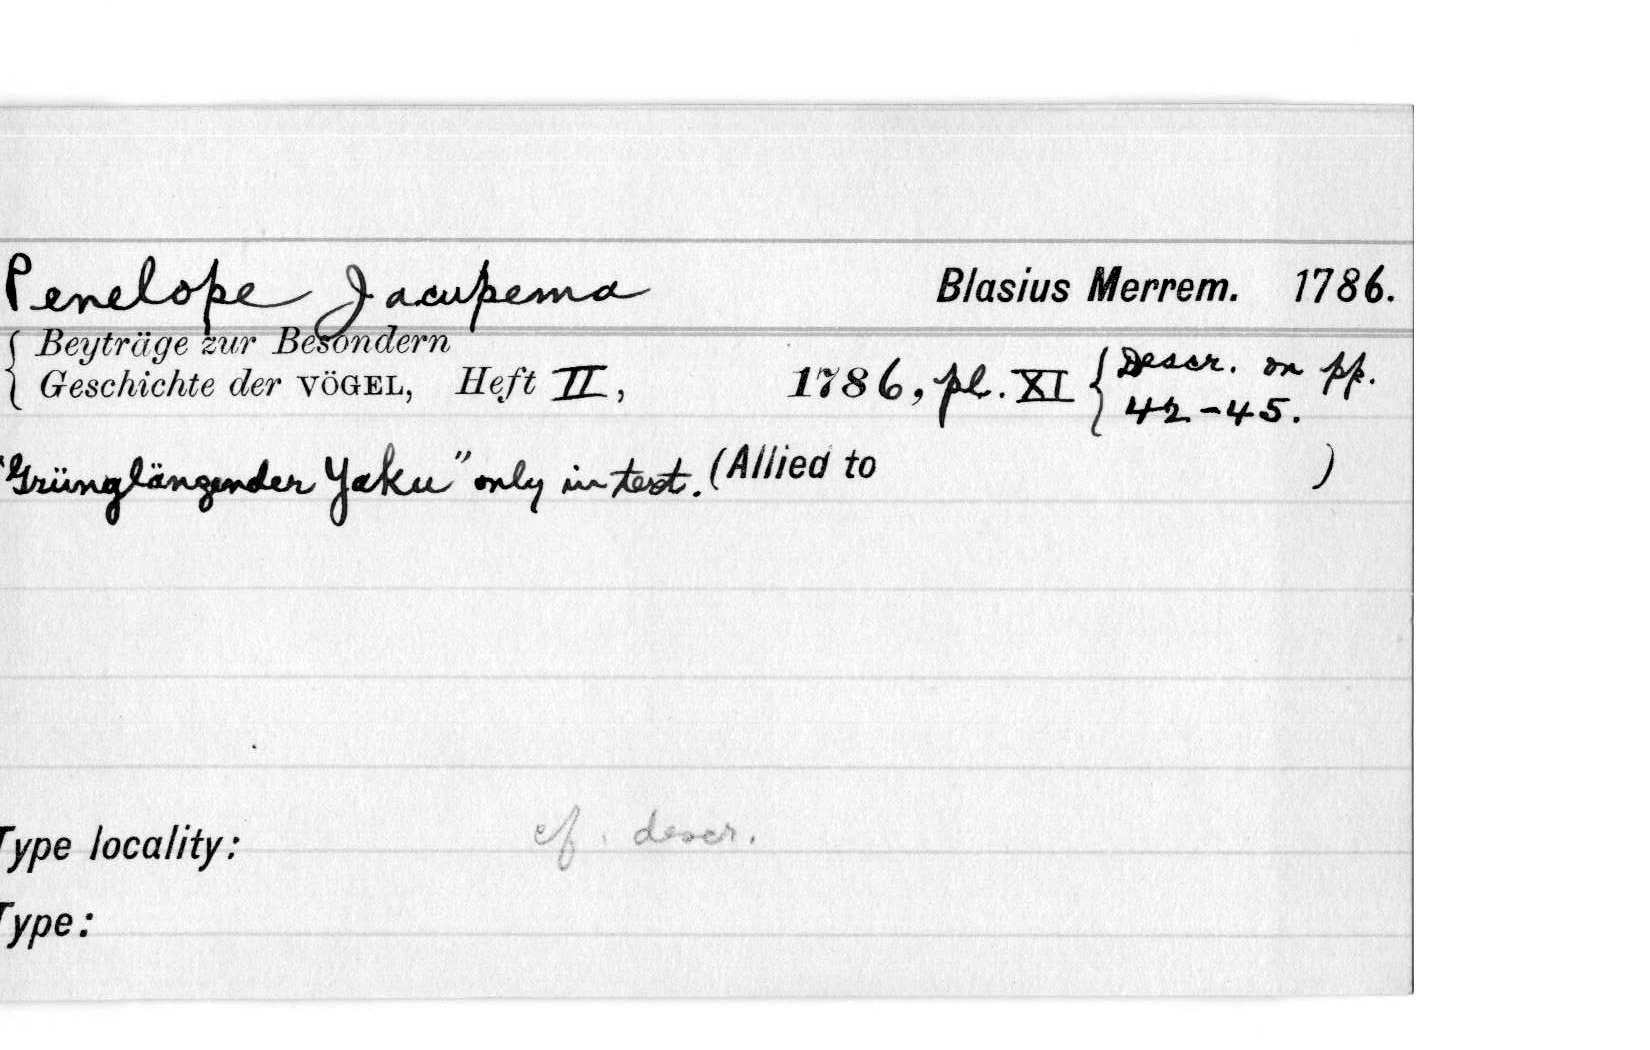 Penelope Jacupema Blasius Merrem. 1786.
{ Beyträge zur Besondern
Geschichte der VÖGEL, Heft II, 1786, pl. XI { Descr. on pp.
42-45.
"Grünglänzender Yaku" only in text. (Allied to )
cf. descr.
Type locality:
Type: